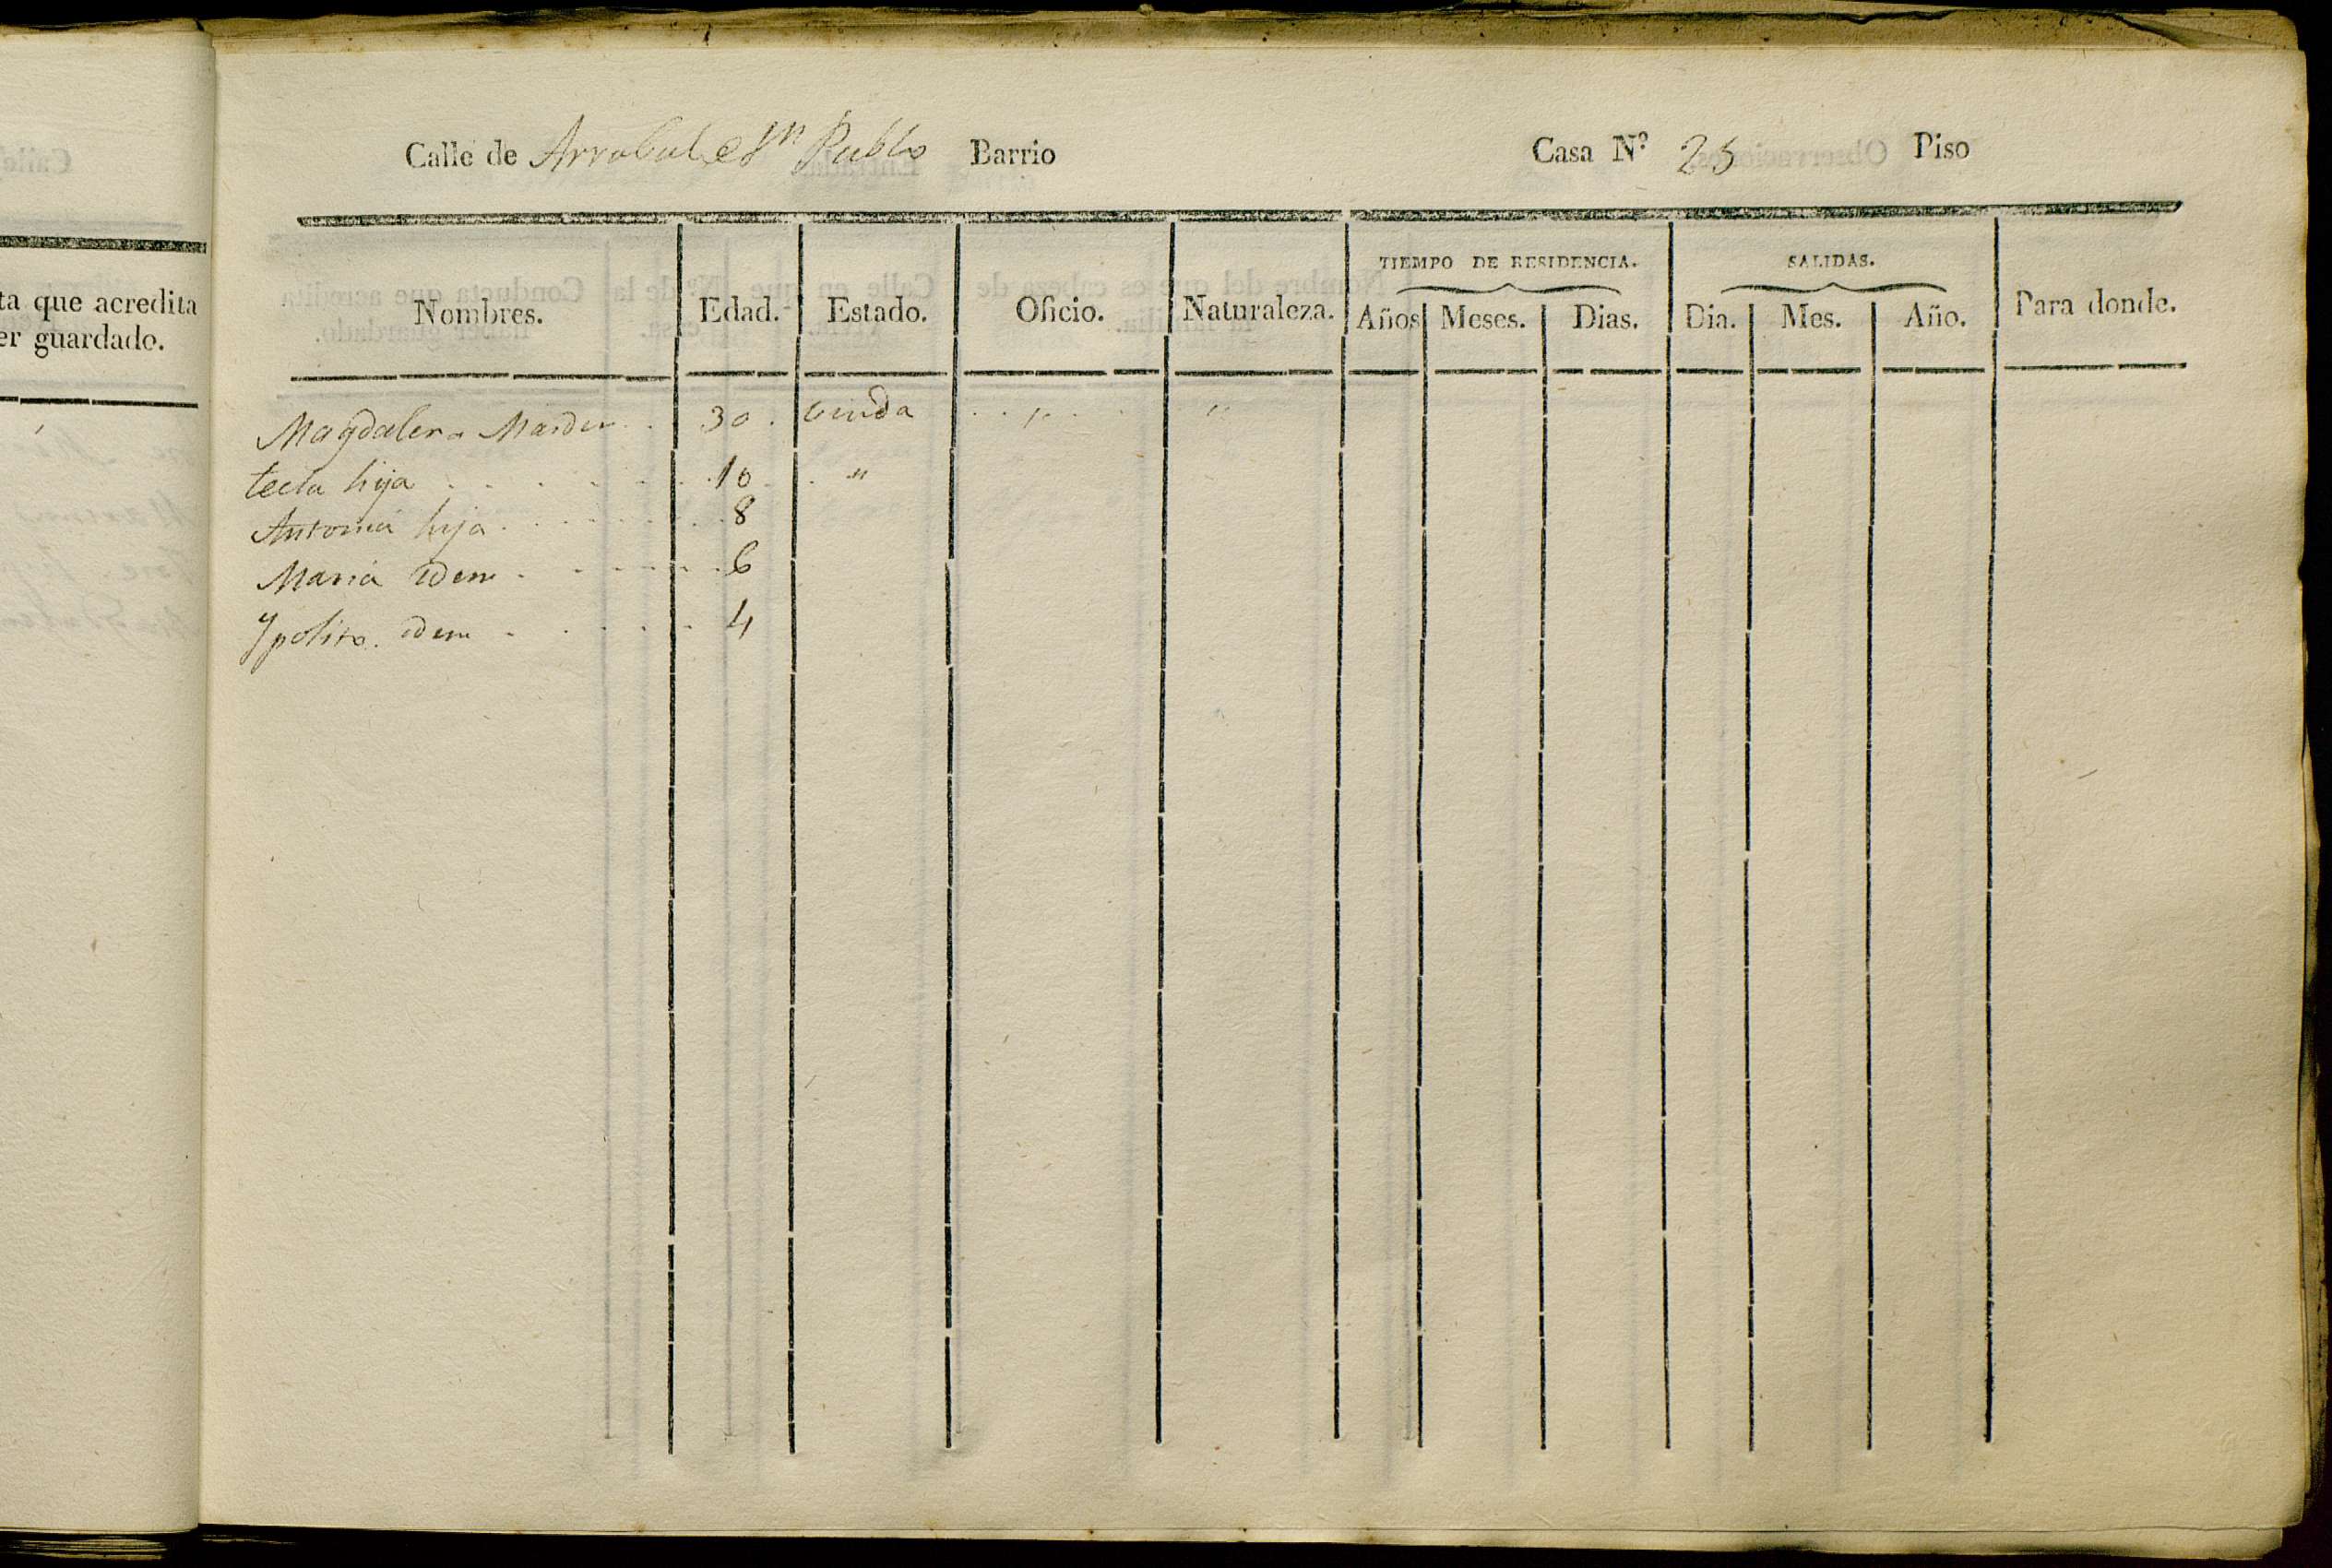 Calle de Arrabal e Sn Pablo Barrio Casa Nº 25 Piso
ta que acredita
er guardado.
Nombres. Edad. Estado. Oficio. Naturaleza. TIEMPO DE RESIDENCIA. Años Meses. Dias. SALIDAS. Dia. Mes. Año. Para donde.
Magdalena 30 . viuda . . " . . "
tecla hija . . . . . . 10 . . "
Antonia hija . . . . . . . 8
Maria idem . . . . . . 6
Ypolito. idem . . . . . 4